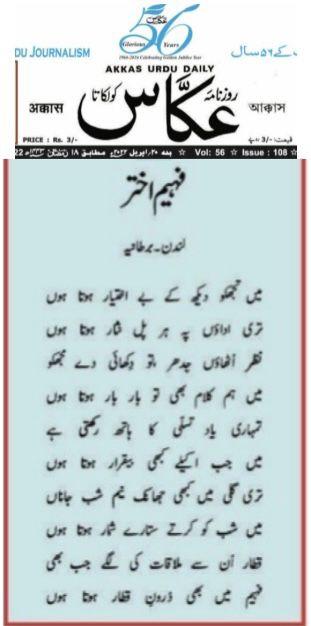 عکاس
56
Glorious Years
1966-2016 Celebrating Golden Jubilee Year
DU JOURNALISM
کے ۵۶ سال
AKKAS URDU DAILY
روزنامہ عکّاس کولکاتا
अक्कास
আক্কাস
PRICE : Rs. 3/-
قیمت: -/3 روپے
22 بدھ ۲۰/اپریل ۲۰۲۲ء مطابق ۱۸ رمضان ۱۴۴۳ھ ☆ Vol: 56 ☆ Issue : 108 ☆
فہیم اختر
لندن۔برطانیہ
میں تجھکو دیکھ کے بے اختیار ہوتا ہوں
تری اداؤں پہ ہر پل نثار ہوتا ہوں
نظر اُٹھاؤں جدھر ،تو دِکھائی دے مجھکو
میں ہم کلام بھی تو بار بار ہوتا ہوں
تمہاری یاد تسلّی کا ہاتھ رکھتی ہے
میں جب اکیلے کبھی بیقرار ہوتا ہوں
تری گلی میں کبھی جھانک نیم شب جاناں
میں شب کو کرتے ستارے شمار ہوتا ہوں
قطار اُن سے ملاقات کی لگے جب بھی
فہیم میں بھی دُرونِ قطار ہوتا ہوں